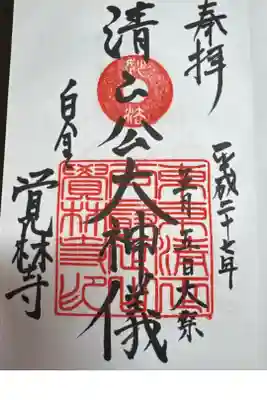 奉拝
平成二十七年
五月五日大祭
清正公大神儀
白金
覚林寺